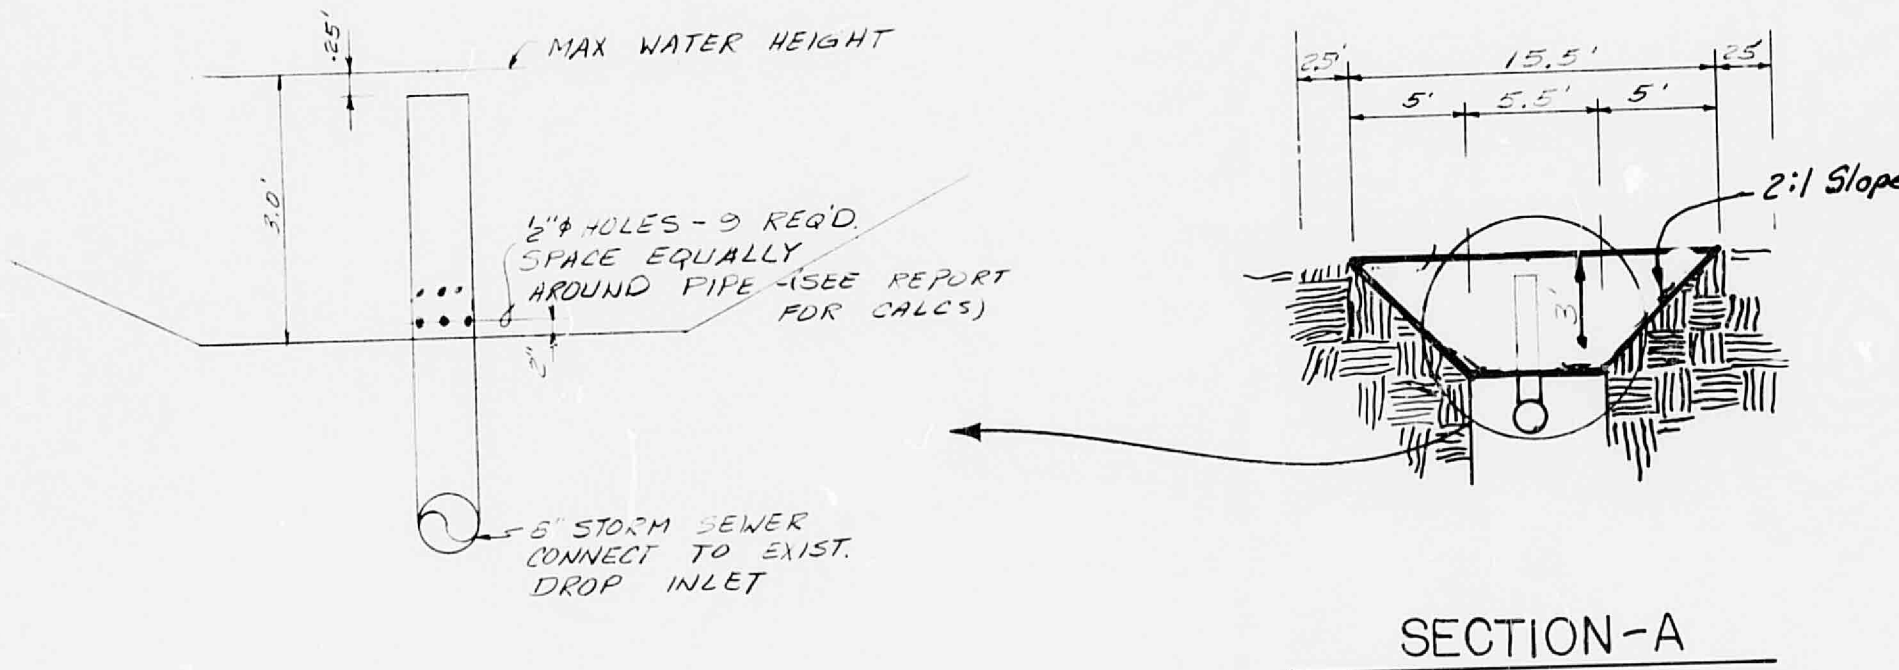 .25'
MAX WATER HEIGHT
3.0'
½"φ HOLES - 9 REQ'D.
SPACE EQUALLY
AROUND PIPE - (SEE REPORT
FOR CALCS)
2"
STORM SEWER
CONNECT TO EXIST.
DROP INLET
25'
15.5'
25'
5'
5.5'
5'
2:1 Slope
3'
SECTION-A